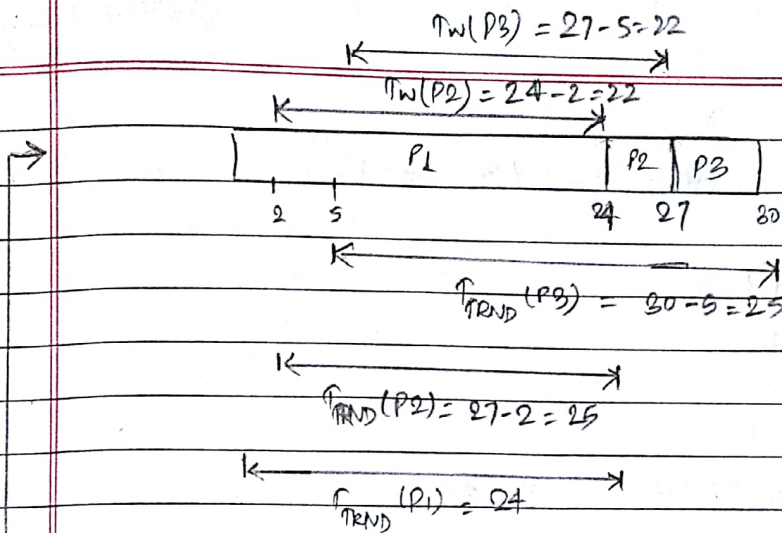 Tw(P3) = 27-5=22
Tw(P2) = 24-2=22
P1 P2 P3
2 5 24 27 30
TTRND (P3) = 30-5=25
TTRND (P2) = 27-2=25
TTRND (P1) = 24